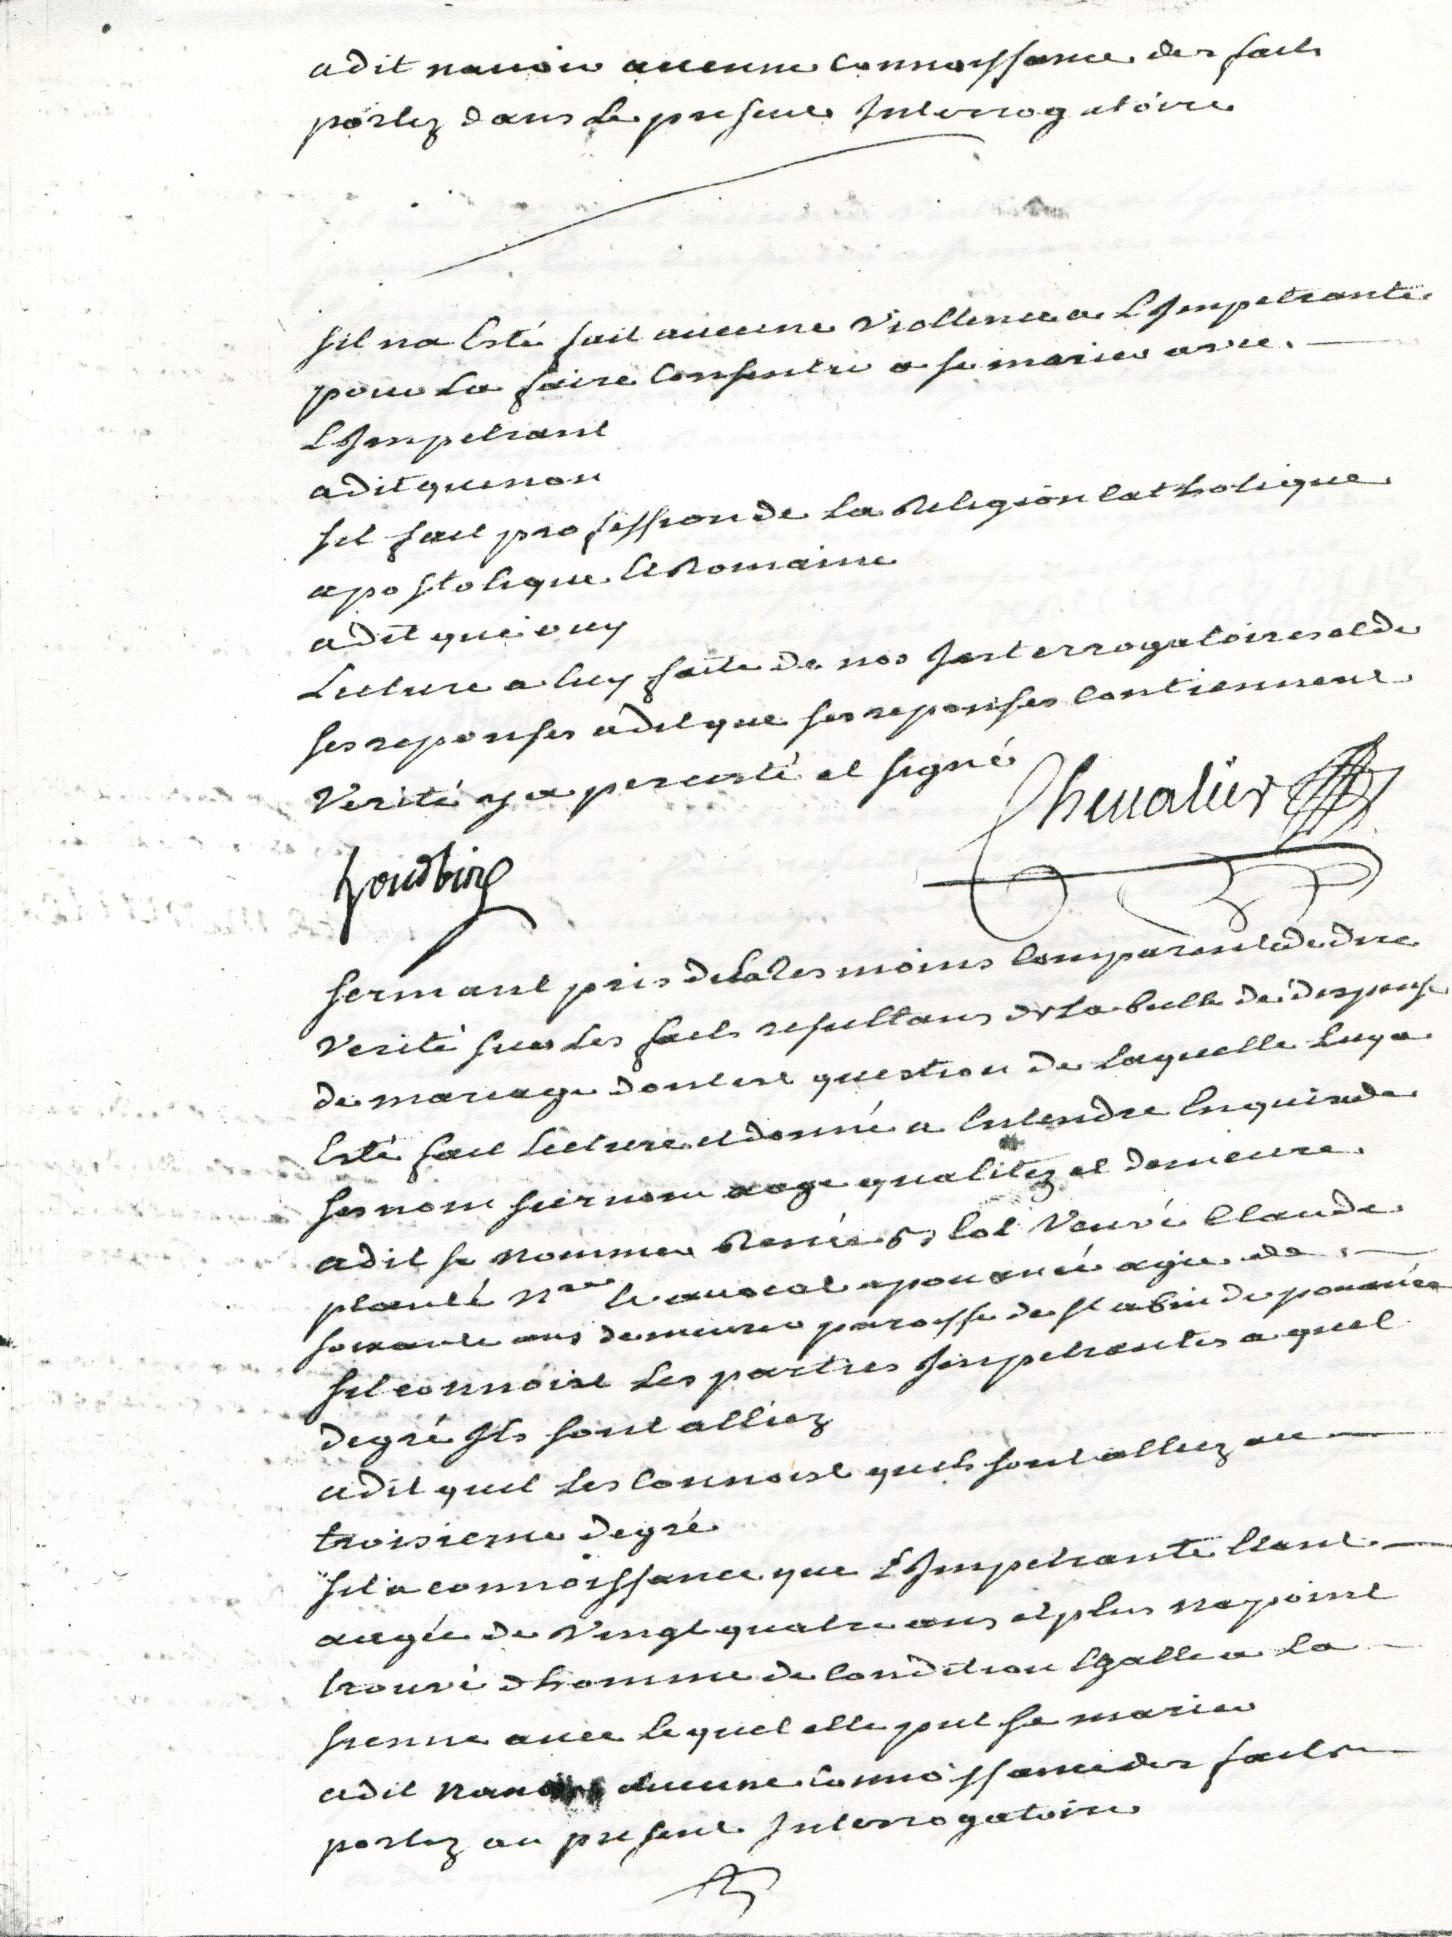 a dit navoir aucune connoissance des faits
portez dans le present Interrogatoire
sil na esté fait aucune viollence a L'Impetrante
pour la faire consentir a se marier avec
L'Impetrant
a dit que non
sil fait profession de la Religion catholique
apostolique et Romaine
a dit que ouy
Lecture a luy faite de nos Interrogatoires et de
ses reponses a dit que ses reponses contiennent
verité y a persisté et signé
Chevalier
serment pris de tesmoins comparent de dire
verité sur les faits resultans de la bulle de dispense
de mariage dont est question de laquelle luy a
esté fait lecture et donné a entendre enquis de
ses nom surnom aage qualitez et demeure
a dit se nommer René veuve Claude
planté avocat a pouancé agée de
soixante ans demeurer paroisse de st aubin de pouancée
sil connoist les parties Impetrantes a quel
degré Ils sont alliez
a dit quil les connoist quils sont alliez au
troisieme degré
sil a connoissance que L'Impetrante etant
aagée de vingt quatre ans et plus na point
trouvé d'homme de condition egalle a la
sienne avec lequel elle put se marier
a dit aucune connoissance des faits
portez au present Interrogatoire